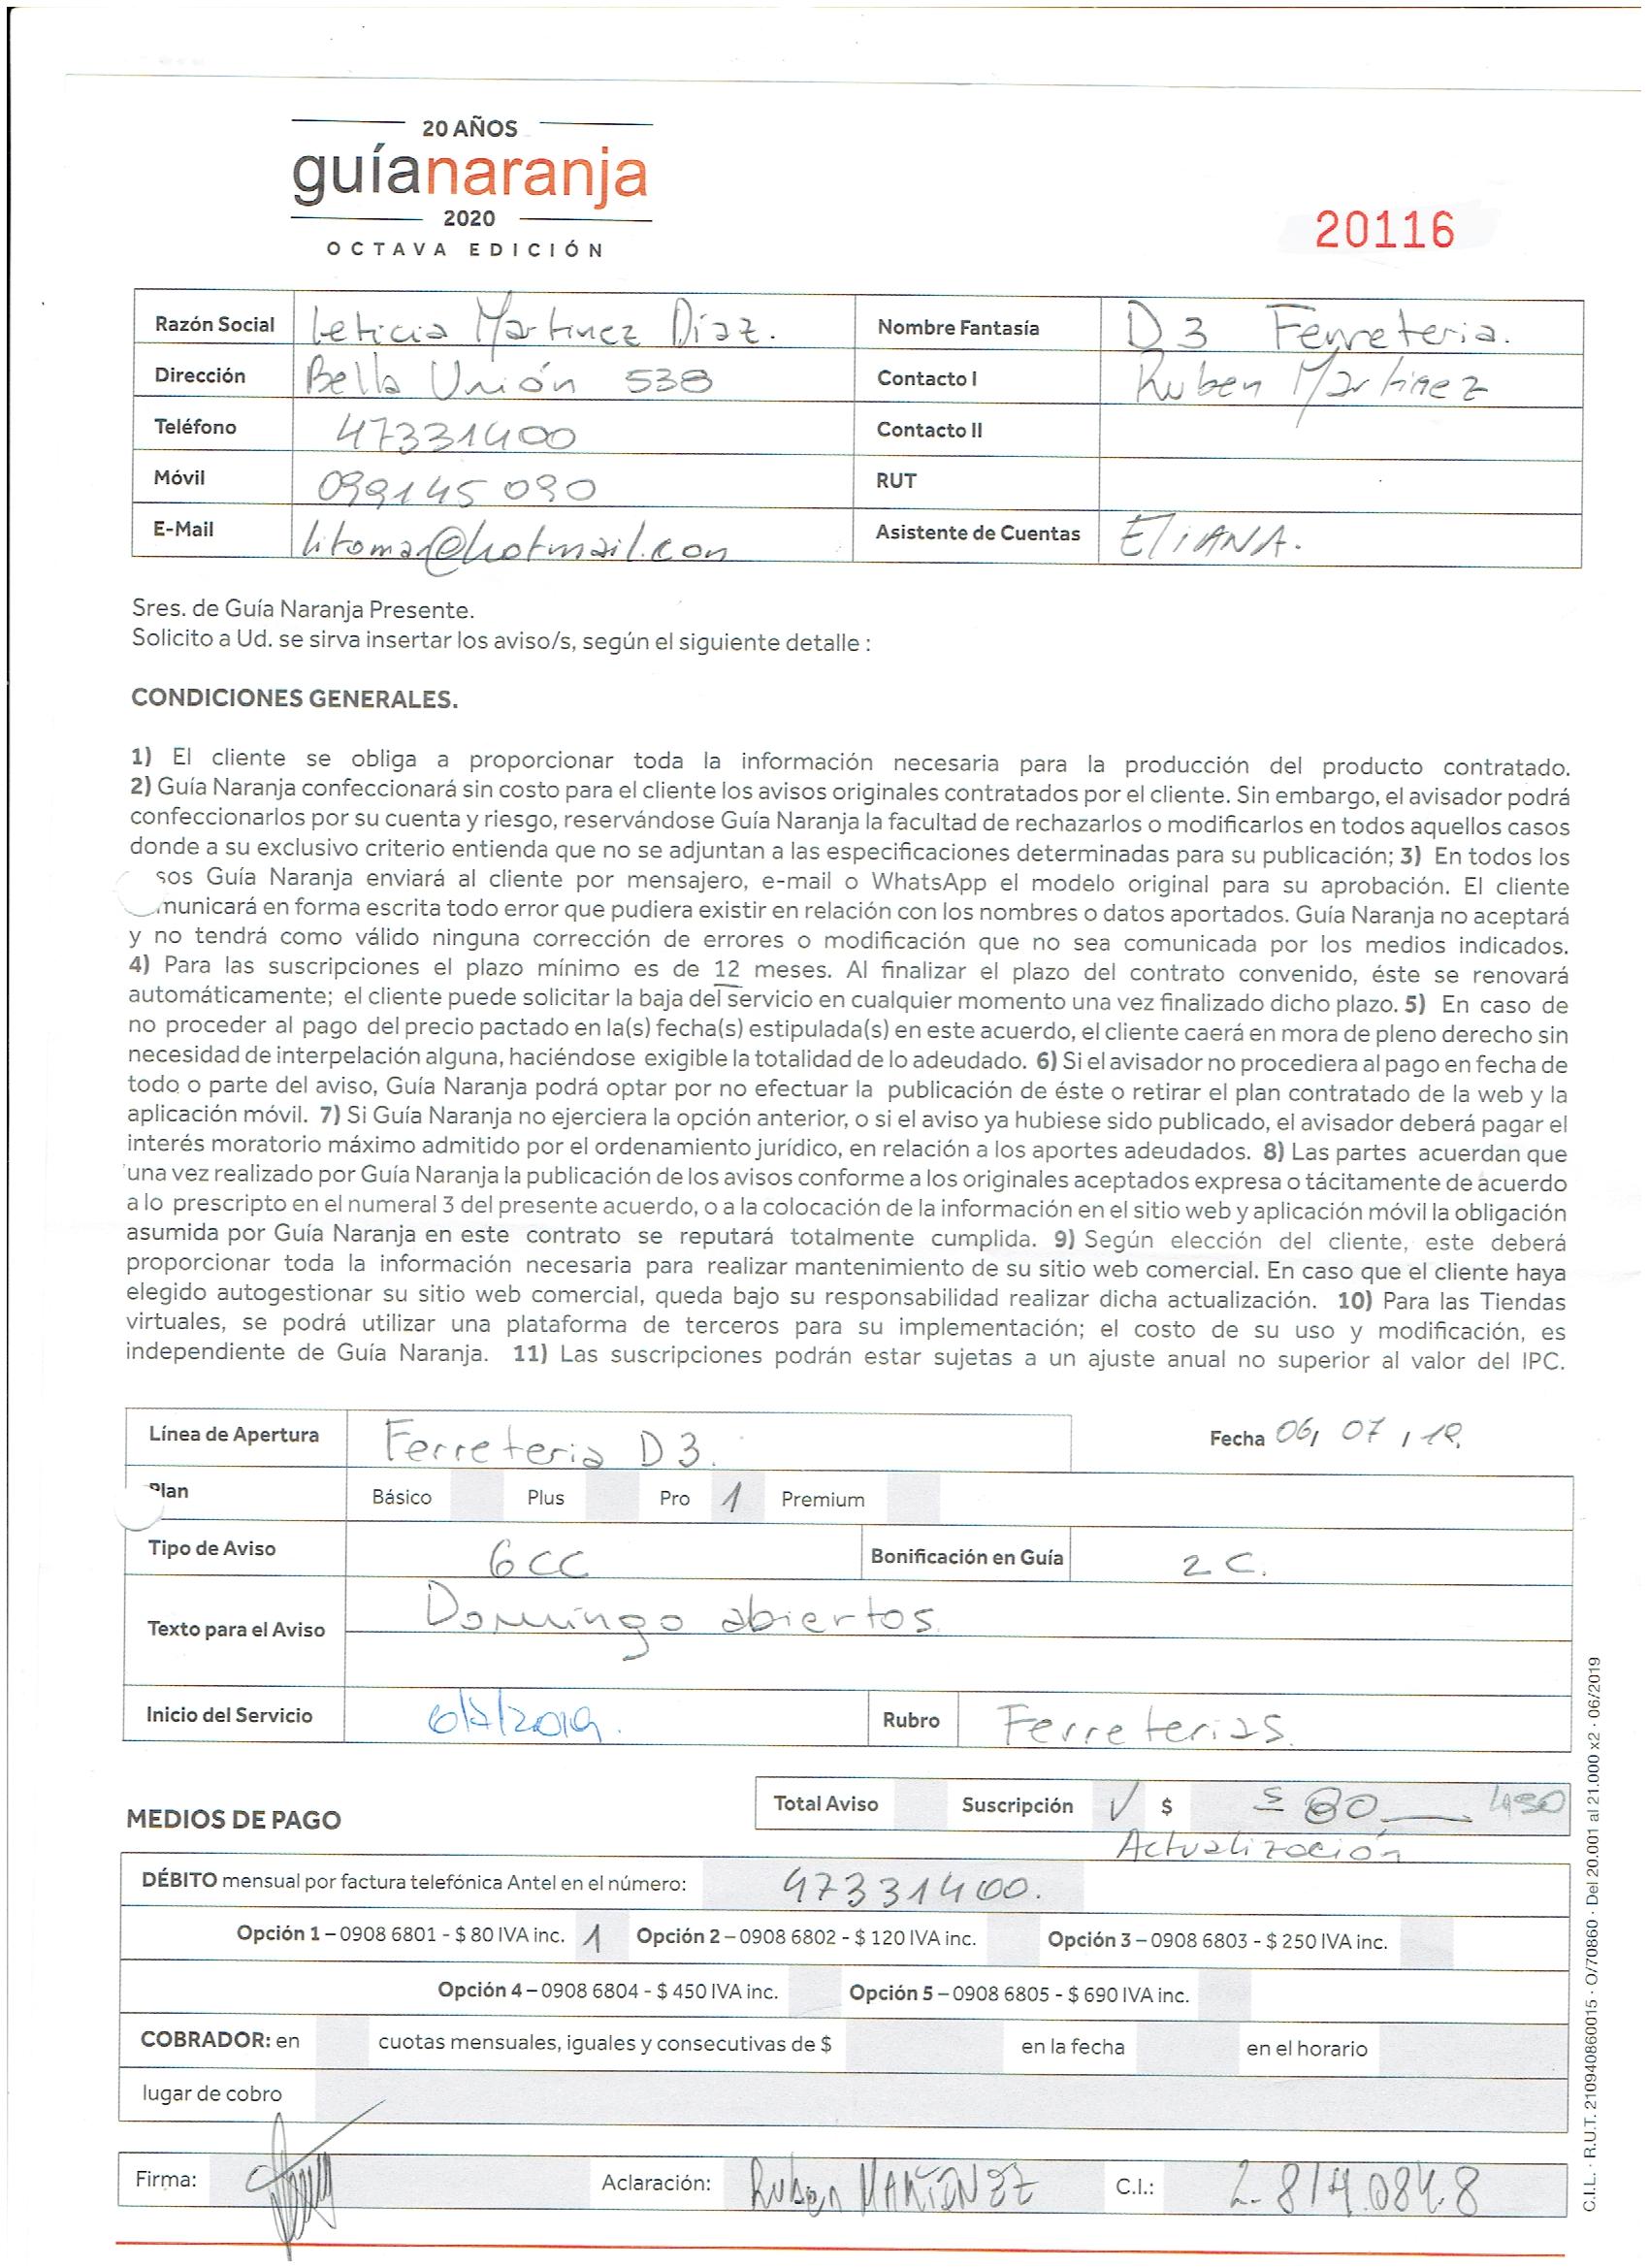 20 AÑOS
guíanaranja
2020
OCTAVA EDICIÓN
20116
Razón Social Leticia Martinez Díaz. Nombre Fantasía D3 Ferreteria.
Dirección Bella Unión 538 Contacto I Ruben Martinez
Teléfono 47331400 Contacto II
Móvil 099145 090 RUT
E-Mail litomar@hotmail.con Asistente de Cuentas ELIANA.
Sres. de Guía Naranja Presente.
Solicito a Ud. se sirva insertar los aviso/s, según el siguiente detalle :
CONDICIONES GENERALES.
1) El cliente se obliga a proporcionar toda la información necesaria para la producción del producto contratado.
2) Guía Naranja confeccionará sin costo para el cliente los avisos originales contratados por el cliente. Sin embargo, el avisador podrá
confeccionarlos por su cuenta y riesgo, reservándose Guía Naranja la facultad de rechazarlos o modificarlos en todos aquellos casos
donde a su exclusivo criterio entienda que no se adjuntan a las especificaciones determinadas para su publicación; 3) En todos los
sos Guía Naranja enviará al cliente por mensajero, e-mail o WhatsApp el modelo original para su aprobación. El cliente
municará en forma escrita todo error que pudiera existir en relación con los nombres o datos aportados. Guía Naranja no aceptará
y no tendrá como válido ninguna corrección de errores o modificación que no sea comunicada por los medios indicados.
4) Para las suscripciones el plazo mínimo es de 12 meses. Al finalizar el plazo del contrato convenido, éste se renovará
automáticamente; el cliente puede solicitar la baja del servicio en cualquier momento una vez finalizado dicho plazo. 5) En caso de
no proceder al pago del precio pactado en la(s) fecha(s) estipulada(s) en este acuerdo, el cliente caerá en mora de pleno derecho sin
necesidad de interpelación alguna, haciéndose exigible la totalidad de lo adeudado. 6) Si el avisador no procediera al pago en fecha de
todo o parte del aviso, Guía Naranja podrá optar por no efectuar la publicación de éste o retirar el plan contratado de la web y la
aplicación móvil. 7) Si Guía Naranja no ejerciera la opción anterior, o si el aviso ya hubiese sido publicado, el avisador deberá pagar el
interés moratorio máximo admitido por el ordenamiento jurídico, en relación a los aportes adeudados. 8) Las partes acuerdan que
una vez realizado por Guía Naranja la publicación de los avisos conforme a los originales aceptados expresa o tácitamente de acuerdo
a lo prescripto en el numeral 3 del presente acuerdo, o a la colocación de la información en el sitio web y aplicación móvil la obligación
asumida por Guía Naranja en este contrato se reputará totalmente cumplida. 9) Según elección del cliente, este deberá
proporcionar toda la información necesaria para realizar mantenimiento de su sitio web comercial. En caso que el cliente haya
elegido autogestionar su sitio web comercial, queda bajo su responsabilidad realizar dicha actualización. 10) Para las Tiendas
virtuales, se podrá utilizar una plataforma de terceros para su implementación; el costo de su uso y modificación, es
independiente de Guía Naranja. 11) Las suscripciones podrán estar sujetas a un ajuste anual no superior al valor del IPC.
Línea de Apertura Ferreteria D3. Fecha 06, 07, 19.
Plan Básico Plus Pro 1 Premium
Tipo de Aviso 6CC Bonificación en Guía 2 C.
Texto para el Aviso Domingo abiertos.
Inicio del Servicio 6/7/2019. Rubro Ferreterias.
Total Aviso Suscripción √ $ $ 80 450
MEDIOS DE PAGO
Actualización
DÉBITO mensual por factura telefónica Antel en el número: 47331400.
Opción 1 – 0908 6801 - $ 80 IVA inc. 1 Opción 2 – 0908 6802 - $ 120 IVA inc. Opción 3 – 0908 6803 - $ 250 IVA inc.
Opción 4 – 0908 6804 - $ 450 IVA inc. Opción 5 – 0908 6805 - $ 690 IVA inc.
COBRADOR: en cuotas mensuales, iguales y consecutivas de $ en la fecha en el horario
lugar de cobro
Firma: Aclaración: Ruben MARTINEZ C.I.:
C.I.L. · R.U.T. 210940860015 · O/70860 · Del 20.001 al 21.000 x2 · 06/2019